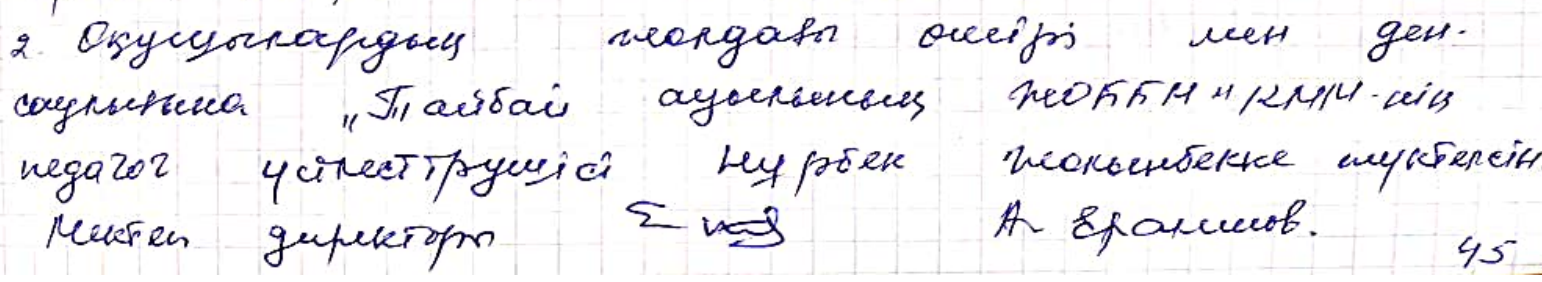 2. Оқушылардың жолдағы өмірі мен ден-
саулығына „Тайбай ауылының ЖОББМ" КММ-нің
педагог ұйымдастырушысы Нұрбек Жолынбекке жүктелсін
Мектеп директоры А. Ералимов.
45